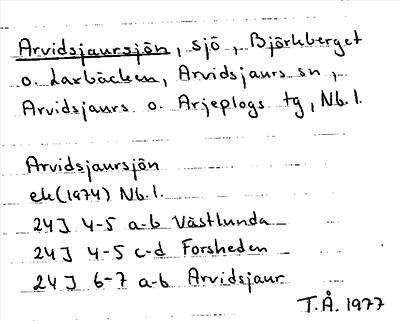 Arvidsjaursjön, sjö, Björkberget
o. Laxbäcken, Arvidsjaurs sn,
Arvidsjaurs o. Arjeplogs tg, Nb.l.
Arvidsjaursjön
ek(1974) Nb.l.
24J 4-5 a-b Västlunda
24J 4-5 c-d Forsheden
24J 6-7 a-b Arvidsjaur
T.Å. 1977